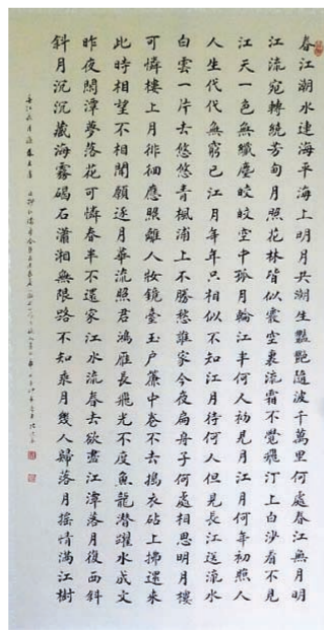 春江潮水連海平海上明月共潮生艷艷隨波千萬里何處春江無月明
江流宛轉繞芳甸月照花林皆似霰空裏流霜不覺飛汀上白沙看不見
江天一色無纖塵皎皎空中孤月輪江半何人初見月江月何年初照人
人生代代無窮已江月年年只相似不知江月待何人但見長江送流水
白雲一片去悠悠青楓浦上不勝愁誰家今夜扁舟子何處相思明月樓
可憐樓上月徘徊應照離人妝鏡臺玉户簾中卷不去搗衣砧上拂還来
此時相望不相聞願逐月華流照君鴻雁長飛光不度魚龍潛躍水成文
昨夜閒潭夢落花可憐春半不還家江水流春去欲盡江潭落月復西斜
斜月沉沉藏海霧碣石瀟湘無限路不知乘月幾人歸落月摇情满江樹